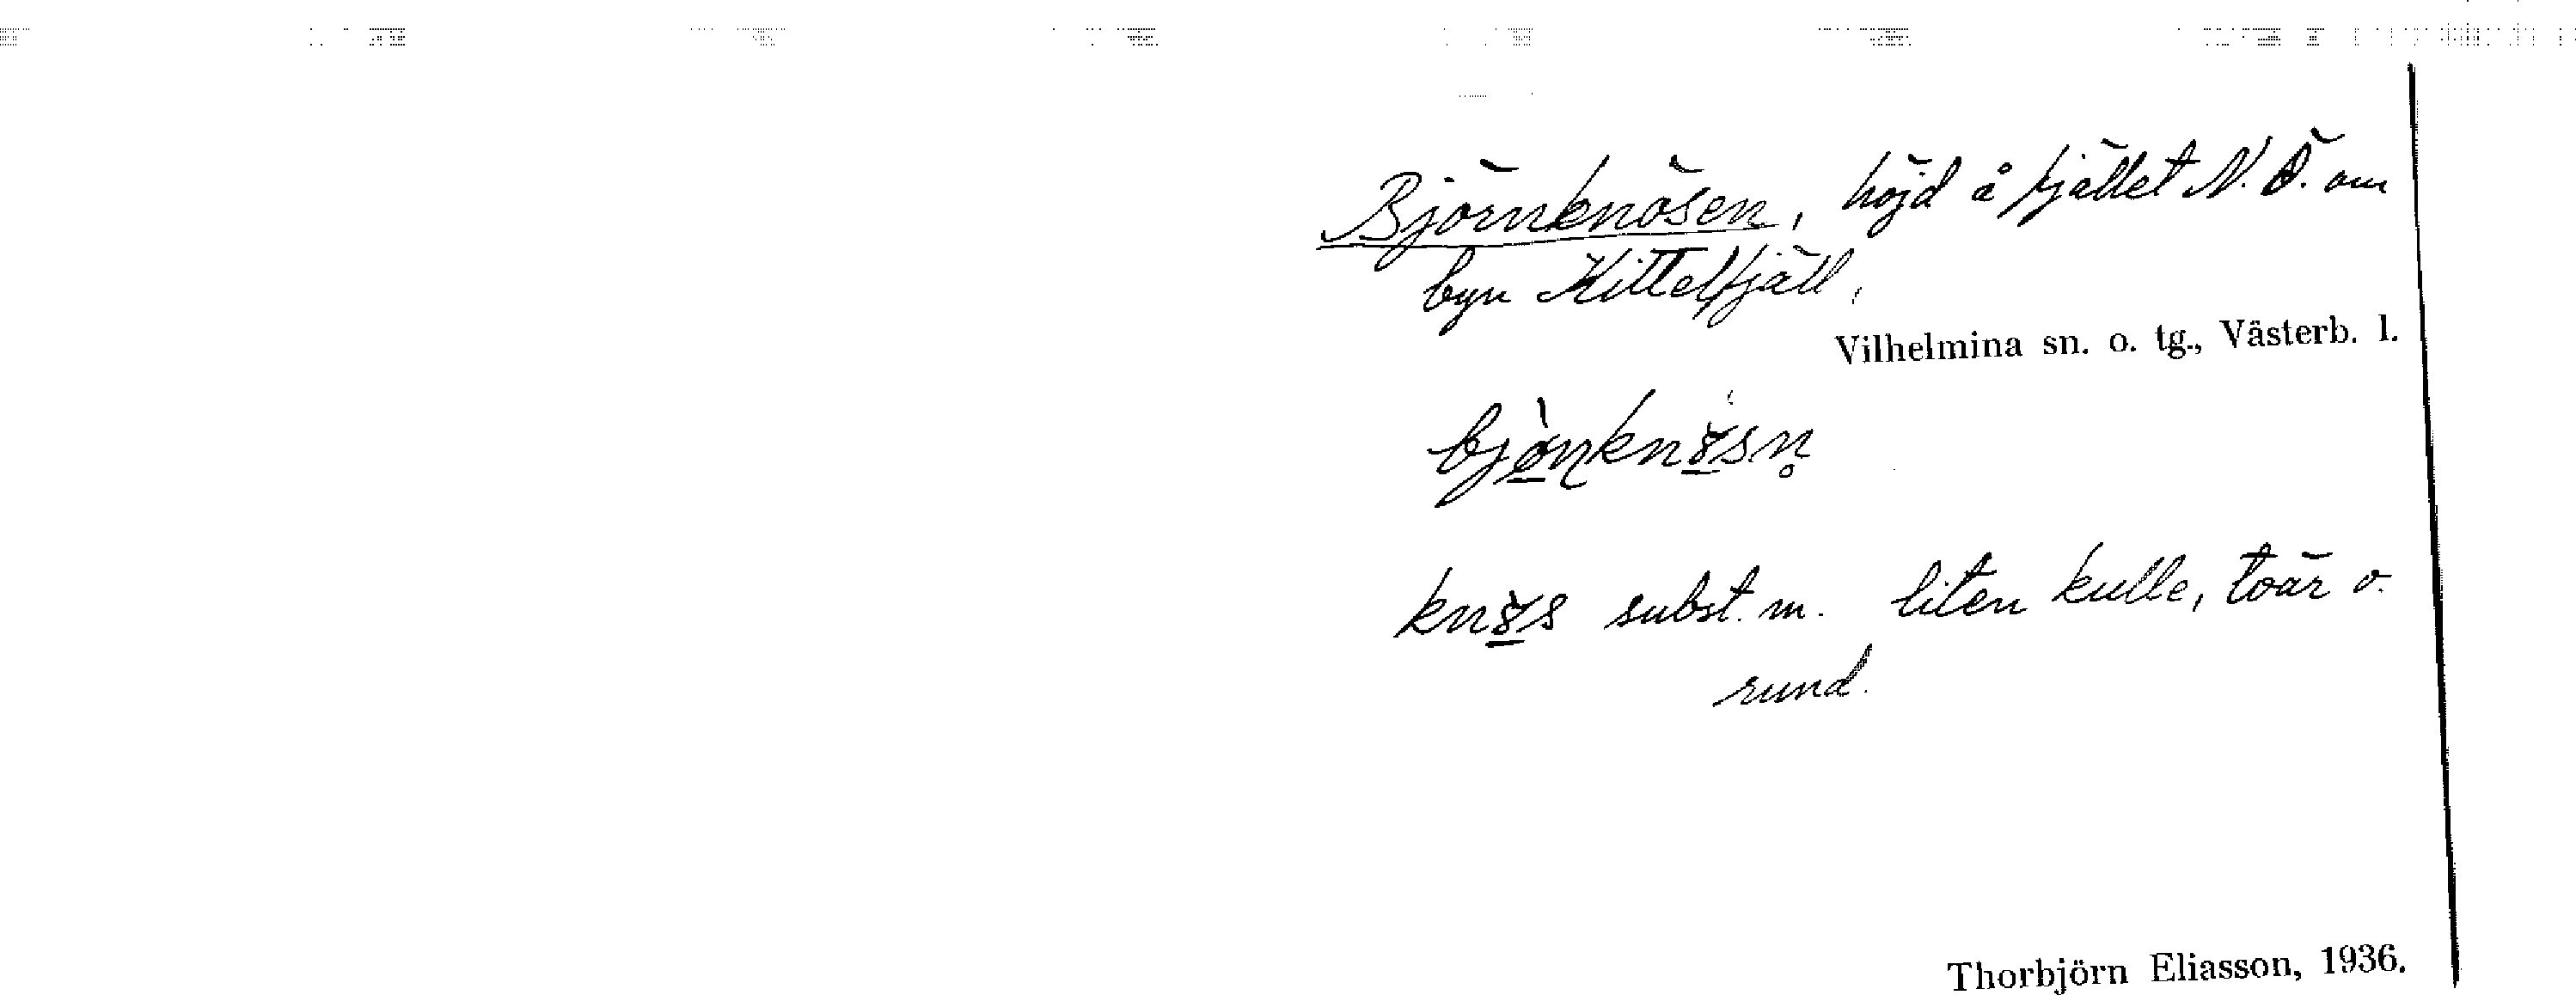 Björnknösen, höjd å fjället N.Ö. om
byn Kittelfjäll,
Vilhelmina sn. o. tg., Västerb. l.
subst. m. liten kulle, tvär o.
rund.
Thorbjörn Eliasson, 1936.